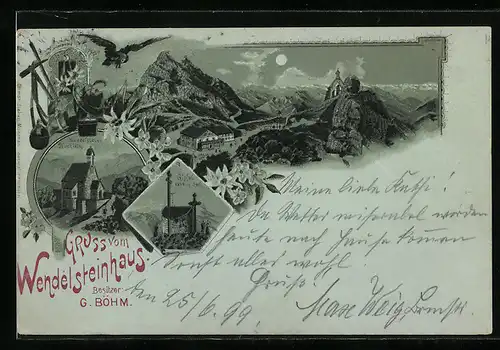 Gruss vom
Wendelsteinhaus.
Besitzer:
G. BÖHM.
Meine liebe Kathi!
Da Wetter miserabel werden
heute nach Hause kommen
Sonst alles wohl
Gruß!
den 25/6. 99.
Max